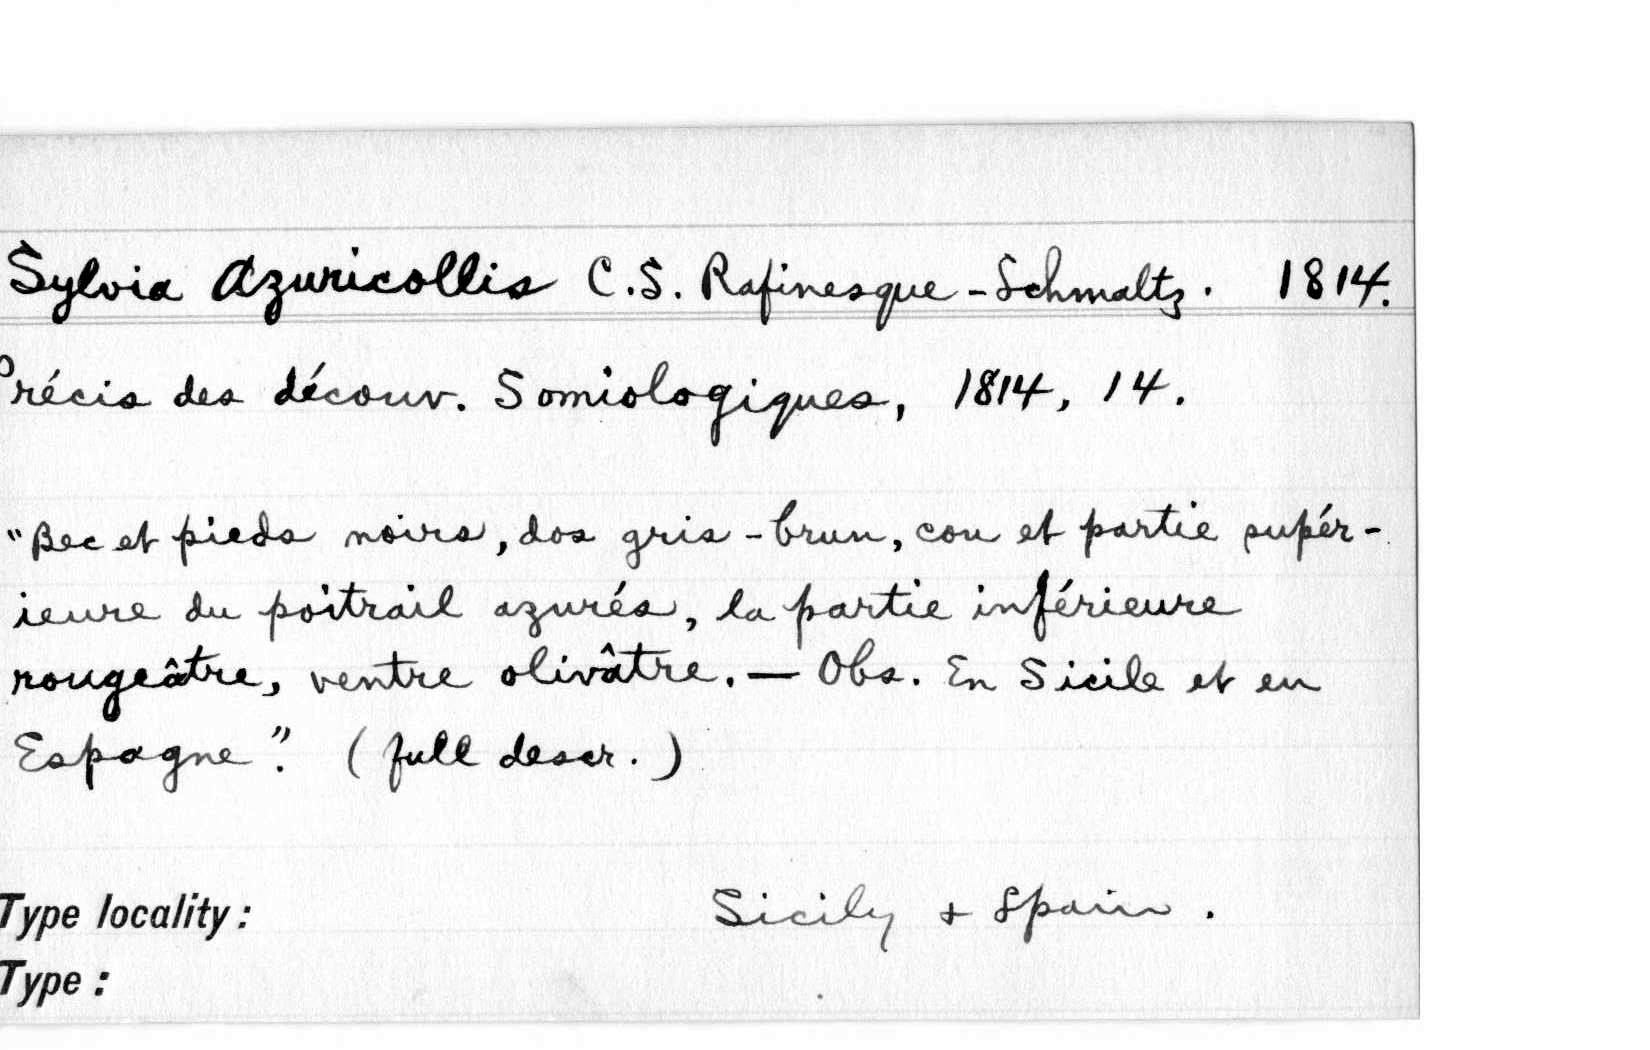 Sylvia azuricollis C.S. Rafinesque-Schmaltz. 1814.
Précis des découv. Somiologiques, 1814, 14.
"Bec et pieds noirs, dos gris-brun, cou et partie supér-
ieure du poitrail azurés, la partie inférieure
rougeâtre, ventre olivâtre. — Obs. En Sicile et en
Espagne". (full descr.)
Type locality: Sicily + Spain.
Type: